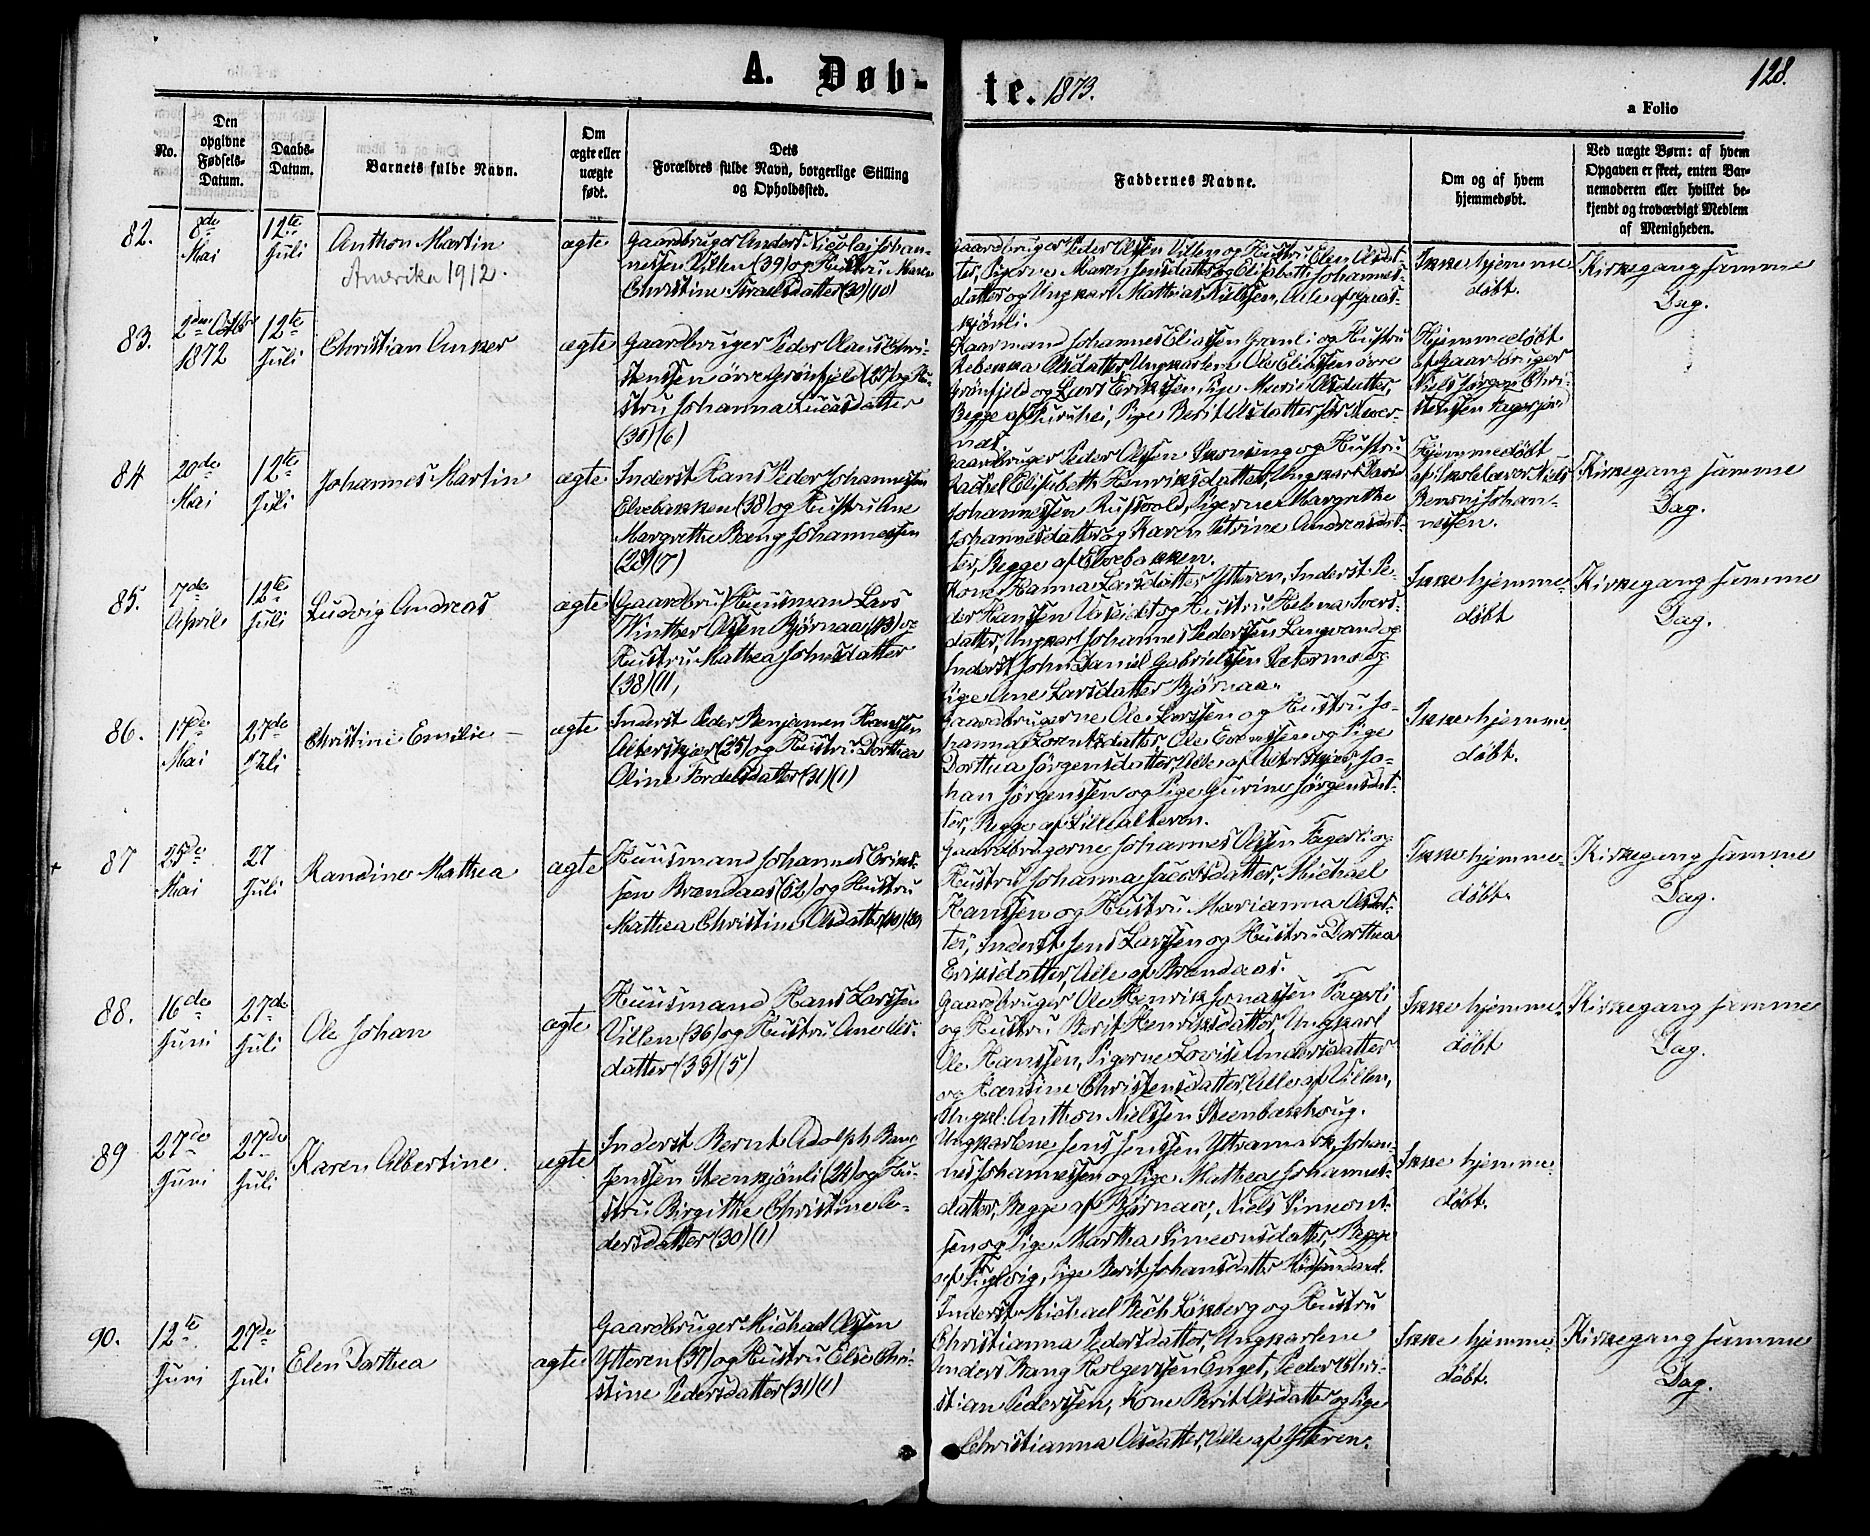 A. Døb-
te. 1873.
128.
a Folio
No.
Den
opgivne
Fødsels-
Datum.
Daabs-
Datum.
Barnets fulde Navn.
Om
ægte eller
uægte
født.
Dets
Forældres fulde Navn, borgerlige Stilling
og Opholdssted.
Faddernes Navne.
Om og af hvem
hjemmedøbt.
Ved uægte Børn: af hvem
Opgaven er skeet, enten Bar-
nemoderen eller hvilket be-
kjendt og troværdigt Medlem
af Menigheden.
82.
8de
Mai
12te
Juli
Anthon Martin
Amerika 1912.
ægte
Gaardbruger Anders Nicolai Johan-
nessen Villen (39) og Hustru Maren
Christine Israelsdatter (30) (10)
Gaardbruger Peder Olssen Villen og Hustru Elen Olsdat-
ter, Pigerne Maren Jensdatter og Elisabeth Johannes-
datter og Ungkarl Mathias Nielssen, Alle af
kjönli.
Ikke hjemme
døbt.
Kirkegang samme
Dag.
83.
2den Octbr
1872
12te
Juli
Christian Anker
ægte
Gaardbruger Peder Olaus Chri-
stenssen övre Grönfjeld (27) og Hu-
stru Johanna Lucasdatter
(30) (6)
Kaarmand Johannes Eliassen Granli og Hustru
Rebekka Olsdatter, Ungkarlene Ole Eliassen övre
Grönfjeld og Lars Erikssen, Pige Marie Olsdatter,
Begge af Furuhei, Pige Berit Olsdatter
næs.
Hjemmedøbt
af Gaardbruger
Niels Jörgen Chri-
stenssen
84
20de
Mai
12te
Juli
Johannes Martin
ægte
Inderst Hans Peder Johannessen
Elvebakken (38) og Hustru Ane
Margrethe Bang Johannessen
(28) (7)
Gaardbruger Peder Olssen og Hustru
Rachel Elisabeth Henriksdatter, Ungkarl
Johannessen Rufsvold, Pigerne Margrethe
Johannesdatter og Karen Petrine Andreasdat-
ter, Begge af Elvebakken.
Hjemmedøbt
af Skolelærer Niels
Johan-
nessen.
Kirkegang samme
Dag.
85.
7de
April
12te
Juli
Ludvig Andreas
ægte
Gaardbru/Huusmand Lars
Winther Olssen Bjørnaa (43) og
Hustru Mathea Johnsdatter
(38) (11)
Kone Hanna Larsdatter Ytteren, Inderst Pe-
der Hanssen og Hustru Helena Ivers-
datter, Ungkarl Johannes Pederssen Langvand og
Inderst John Daniel Gabrielssen og
Pige Ane Larsdatter Bjørnaa.
Ikke hjemme-
døbt
Kirkegang samme
Dag.
86.
17de
Mai
27de
Juli
Christine Emilie
ægte
Inderst Peder Benjamin Hanssen
Alterskjær (25) og Hustru Dorthea
Oline Tordelsdatter (31) (1)
Gaardbrugerne Ole Larssen og Hustru Jo-
hanna Lorentsdatter, Ole Evenssen og Pige
Dorthea Jörgensdatter, Alle af Alterskjær, Jo-
han Jörgenssen og Pige Gurine Jörgensdat-
ter, Begge af Lillealteren.
Ikke hjemme
døbt.
87
25de
Mai
27
Juli
Randine Mathea
ægte
Huusmand Johannes Eriks-
sen Brændaas (52) og Hustru
Mathea Christine Olsdatter (40) (10)
Gaardbrugerne Johannes Olssen Fagerli og
Hustru Johanna Jacobsdatter, Michael
Hanssen og Hustru Marianna Olsdat-
ter, Inderst Jens Larssen og Hustru Dorthea
Eriksdatter, Alle af Brændaas.
Ikke hjemme-
døbt.
Kirkegang samme
Dag.
88.
16de
Juni
27de
Juli
Ole Johan
ægte
Huusmand Hans Larssen
Villen (36) og Hustru Ane Ols-
datter (35) (5)
Gaardbruger Ole Henrik Jonassen Fagerli
og Hustru Berit Henriksdatter, Ungkarl
Ole Hanssen, Pigerne Lovise Andersdatter
og Hansine Christensdatter, Alle af Villen,
Ungkl. Anthon Nielssen Steenbækhoug.
Ikke hjemme-
døbt
Kirkegang samme
Dag.
89
27de
Juni
27de
Juli
Karen Albertine.
ægte
Inderst Bernt Adolph Bang
Jenssen Steenkjönli (24) og Hu-
stru Birgithe Christine Pe-
dersdatter (30) (1)
Ungkarlene Jens Jenssen Yttramark, Johan-
nes Johannessen og Pige Mathea Johannes-
datter, Begge af Bjørnaa, Niels Simeons-
sen og Pige Martha Simeonsdatter, Begge
af Fuglvig, Pige Berit Johansdatter
Ikke hjemme-
døbt.
90.
12te
Juni
27de
Juli
Elen Dorthea
ægte
Gaardbruger Michael Olssen
Ytteren (37) og Hustru Else Chri-
stine Pedersdatter (31) (1)
Inderst Michael Bech Lökberg og Hustru
Christianna Pedersdatter, Ungkarlene
Anders Bang Holgerssen Enget, Peder Chri-
stian Pederssen, Kone Berit Olsdatter og Pige
Christianna Olsdatter, Alle af Ytteren.
Ikke hjemme-
døbt.
Kirkegang samme
Dag.